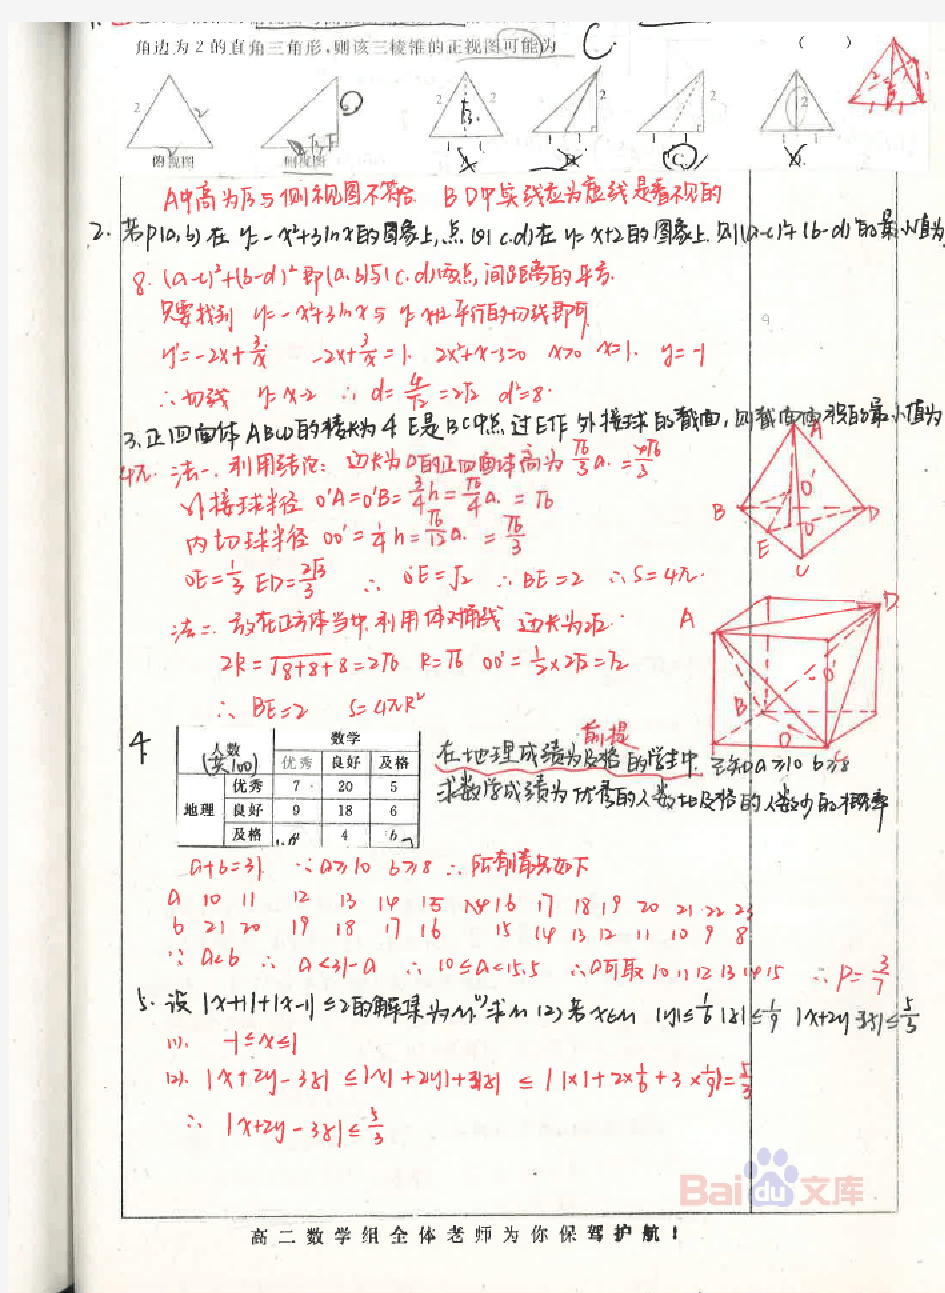 角边为2的直角三角形,则该三棱锥的正视图可能为 C ( )
2 2 2 2 2 2 2
俯视图 侧视图 A B C D
A中高为√3与侧视图不符合 B D中实线应为虚线是看不见的
2. 若P(a,b)在y=-x²+3lnx的图象上,点Q(c,d)在y=x+2的图象上,则(a-c)²+(b-d)²的最小值为
8. (a-c)²+(b-d)²即(a,b)与(c,d)两点间距离的平方.
只要找到y=-x²+3lnx与y=x+2平行的切线即可
y'=-2x+3/x -2x+3/x=1. 2x²+x-3=0 x>0 x=1. y=-1
∴切线 y=x-2 ∴d=4/√2=2√2 d²=8.
3.正四面体ABCD的棱长为4 E是BC中点 过E作外接球的截面,则截面面积的最小值为
4π. 法一.利用结论:边长为a的正四面体高为√6/3 a.=4√6/3
外接球半径 O'A=O'B=3/4h=√6/4 a.=√6
内切球半径 OO'=1/4 h=√6/12 a.=√6/3
OE=1/3 ED=2√3/3 ∴ O'E=√2 ∴BE=2 ∴S=4π.
A B C D E O O'
法二.放在正方体当中,利用体对角线 边长为2√2
2R=√8+8+8=2√6 R=√6 OO'=1/2×2√2=√2
∴BE=2 S=4πR²
A B C D O O'
4.
人数 数学
(共100) 优秀 良好 及格
优秀 7 20 5
地理 良好 9 18 6
及格 a 4 b
前提
在地理成绩为及格的学生中,已知a≥10 b≥8
求数学成绩为优秀的人数比及格的人数少的概率
a+b=31. ∵a≥10 b≥8 ∴所有情况如下
a 10 11 12 13 14 15 16 17 18 19 20 21 22 23
b 21 20 19 18 17 16 15 14 13 12 11 10 9 8
∵a<b ∴a<31-a ∴10≤a<15.5 ∴a可取10 11 12 13 14 15 ∴P=3/7
5. 设|x+1|+|x-1|≤2的解集为M (1)求M (2)若x∈M |y|≤1/6 |z|≤1/9 |x+2y-3z|≤5/3
(1). -1≤x≤1
(2). |x+2y-3z|≤|x|+2|y|+3|z|≤|1×1+2×1/6+3×1/9|=5/3
∴|x+2y-3z|≤5/3
Baidu文库
高二数学组全体老师为你保驾护航!